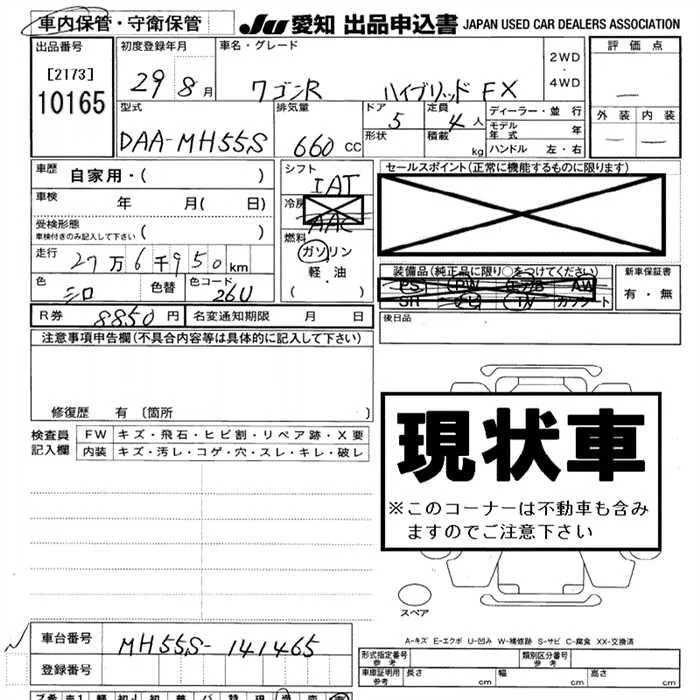 車内保管・守衛保管 JU 愛知 出品申込書 JAPAN USED CAR DEALERS ASSOCIATION
出品番号 初度登録年月 車名・グレード 2WD ・ 4WD 評価点
[2173] 10165 29 8月 ワゴンR ハイブリッド FX
型式 排気量 ドア 定員 ディーラー・並行 外装 内装
DAA-MH55S 660 CC 5 4人 モデル年式 年
形状 積載 kg ハンドル 左・右
車歴 自家用・( ) シフト IAT セールスポイント(正常に機能するものに限ります)
車検 年 月( 日) 冷房 AAC
受検形態 車検付きのみ記入して下さい ( ) 燃料 ガソリン
走行 27万6千950km 軽・油 装備品(純正品に限り○をつけてください) 新車保証書
色 シロ 色替 色コード 26U ・( ) PS PW エアB AW 有・無
SR ナビ TV カワシート
R券 8850円 名変通知期限 月 日 後日品
注意事項申告欄(不具合内容等は具体的に記入して下さい)
修復歴 有 〔箇所 〕
検査員 FW キズ・飛石・ヒビ割・リペア跡・X要
記入欄 内装 キズ・汚レ・コゲ・穴・スレ・キレ・破レ
現状車
※このコーナーは不動車も含み
ますのでご注意下さい
スペア
A-キズ E-エクボ U-凹み W-補修跡 S-サビ C-腐食 XX-交換済
車台番号 MH55S-141465
登録番号
形式指定番号 参考 類別区分番号 参考
車庫証明用 参考 長さ cm 幅 cm 高さ cm